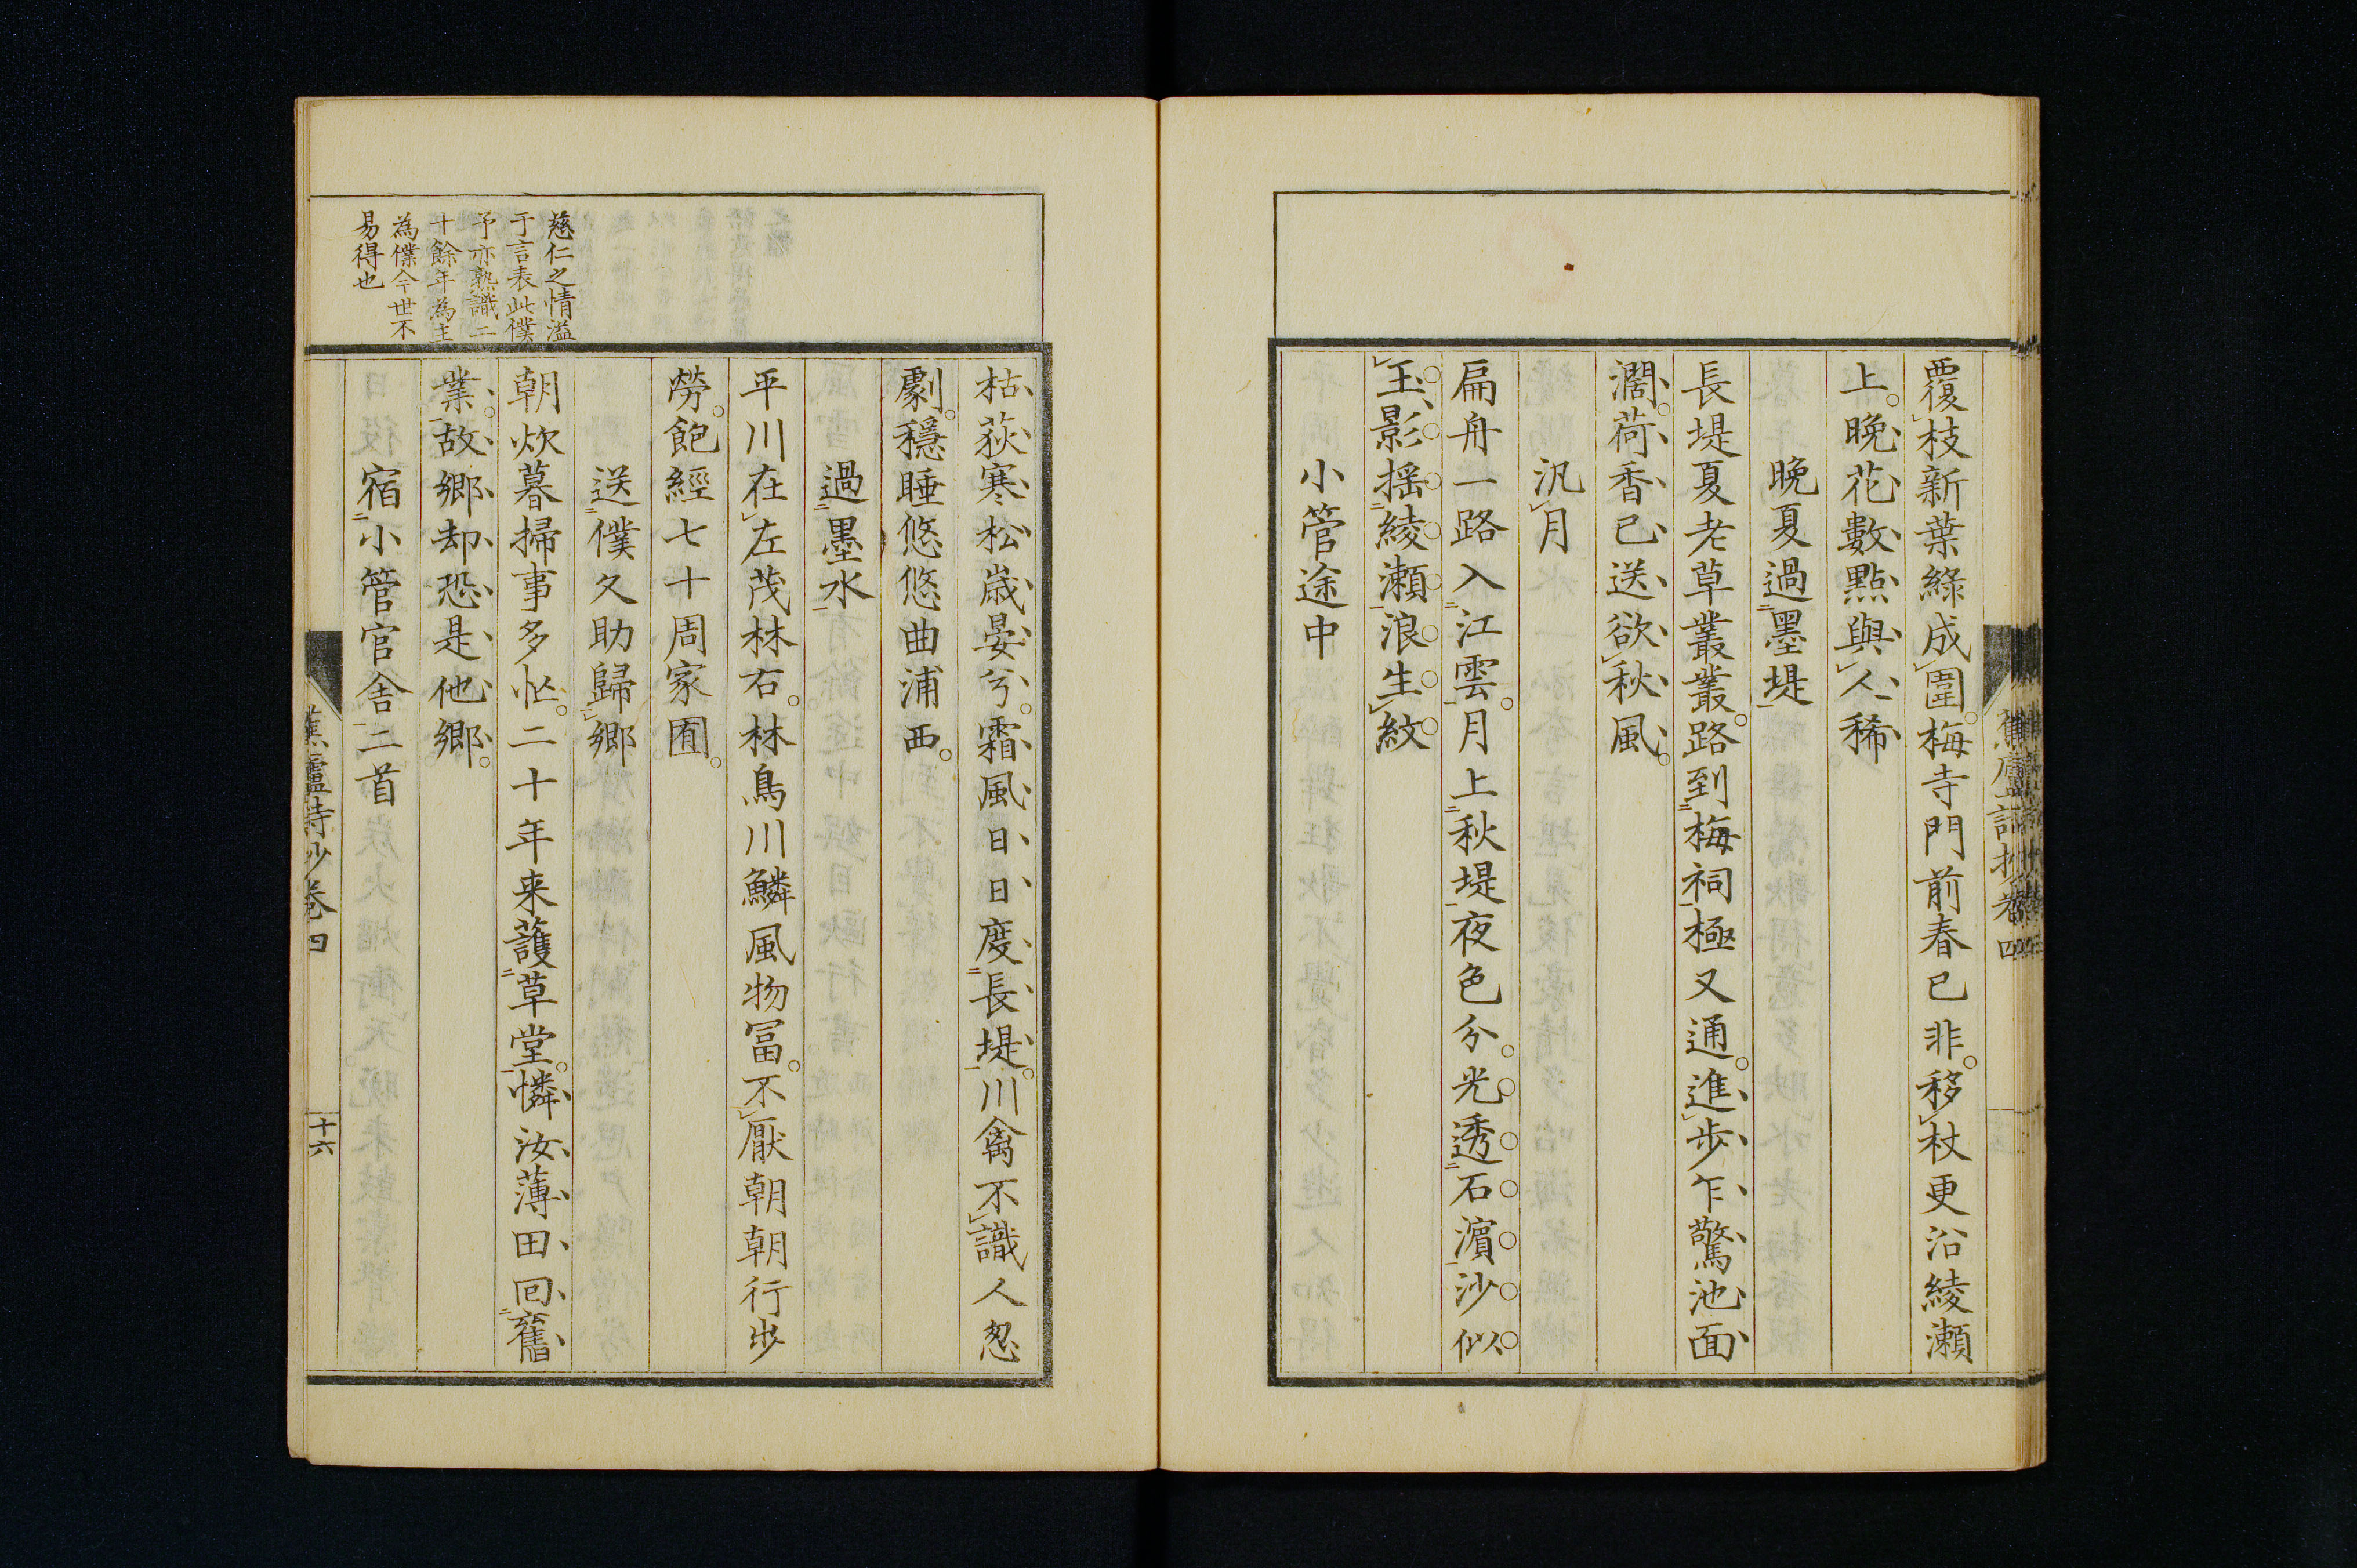 覆枝新葉綠成圍梅寺門前春已非移杖更沿綾瀬
上晚花數點與人稀
晚夏過墨堤
長堤夏老草叢叢路到梅祠極又通進步乍驚池面
濶荷香已送欲秋風
汎月
扁舟一路入江雲月上秋堤夜色分光透石濵沙似
玉影搖綾瀬浪生紋
小管途中
枯荻寒松歲晏兮霜風日日度長堤川禽不識人怱
劇穩睡悠悠曲浦西
過墨水
平川在左茂林右林鳥川鱗風物冨不厭朝朝行步
勞飽經七十周家囿
送僕久助歸鄉
朝炊暮掃事多忙二十年来護草堂憐汝薄田回舊
業故鄉却恐是他鄉
宿小管官舍二首
慈仁之情溢
于言表此僕
予亦熟識二
十餘年為主
為僕今世不
易得也
蕉廬詩抄卷四
十六